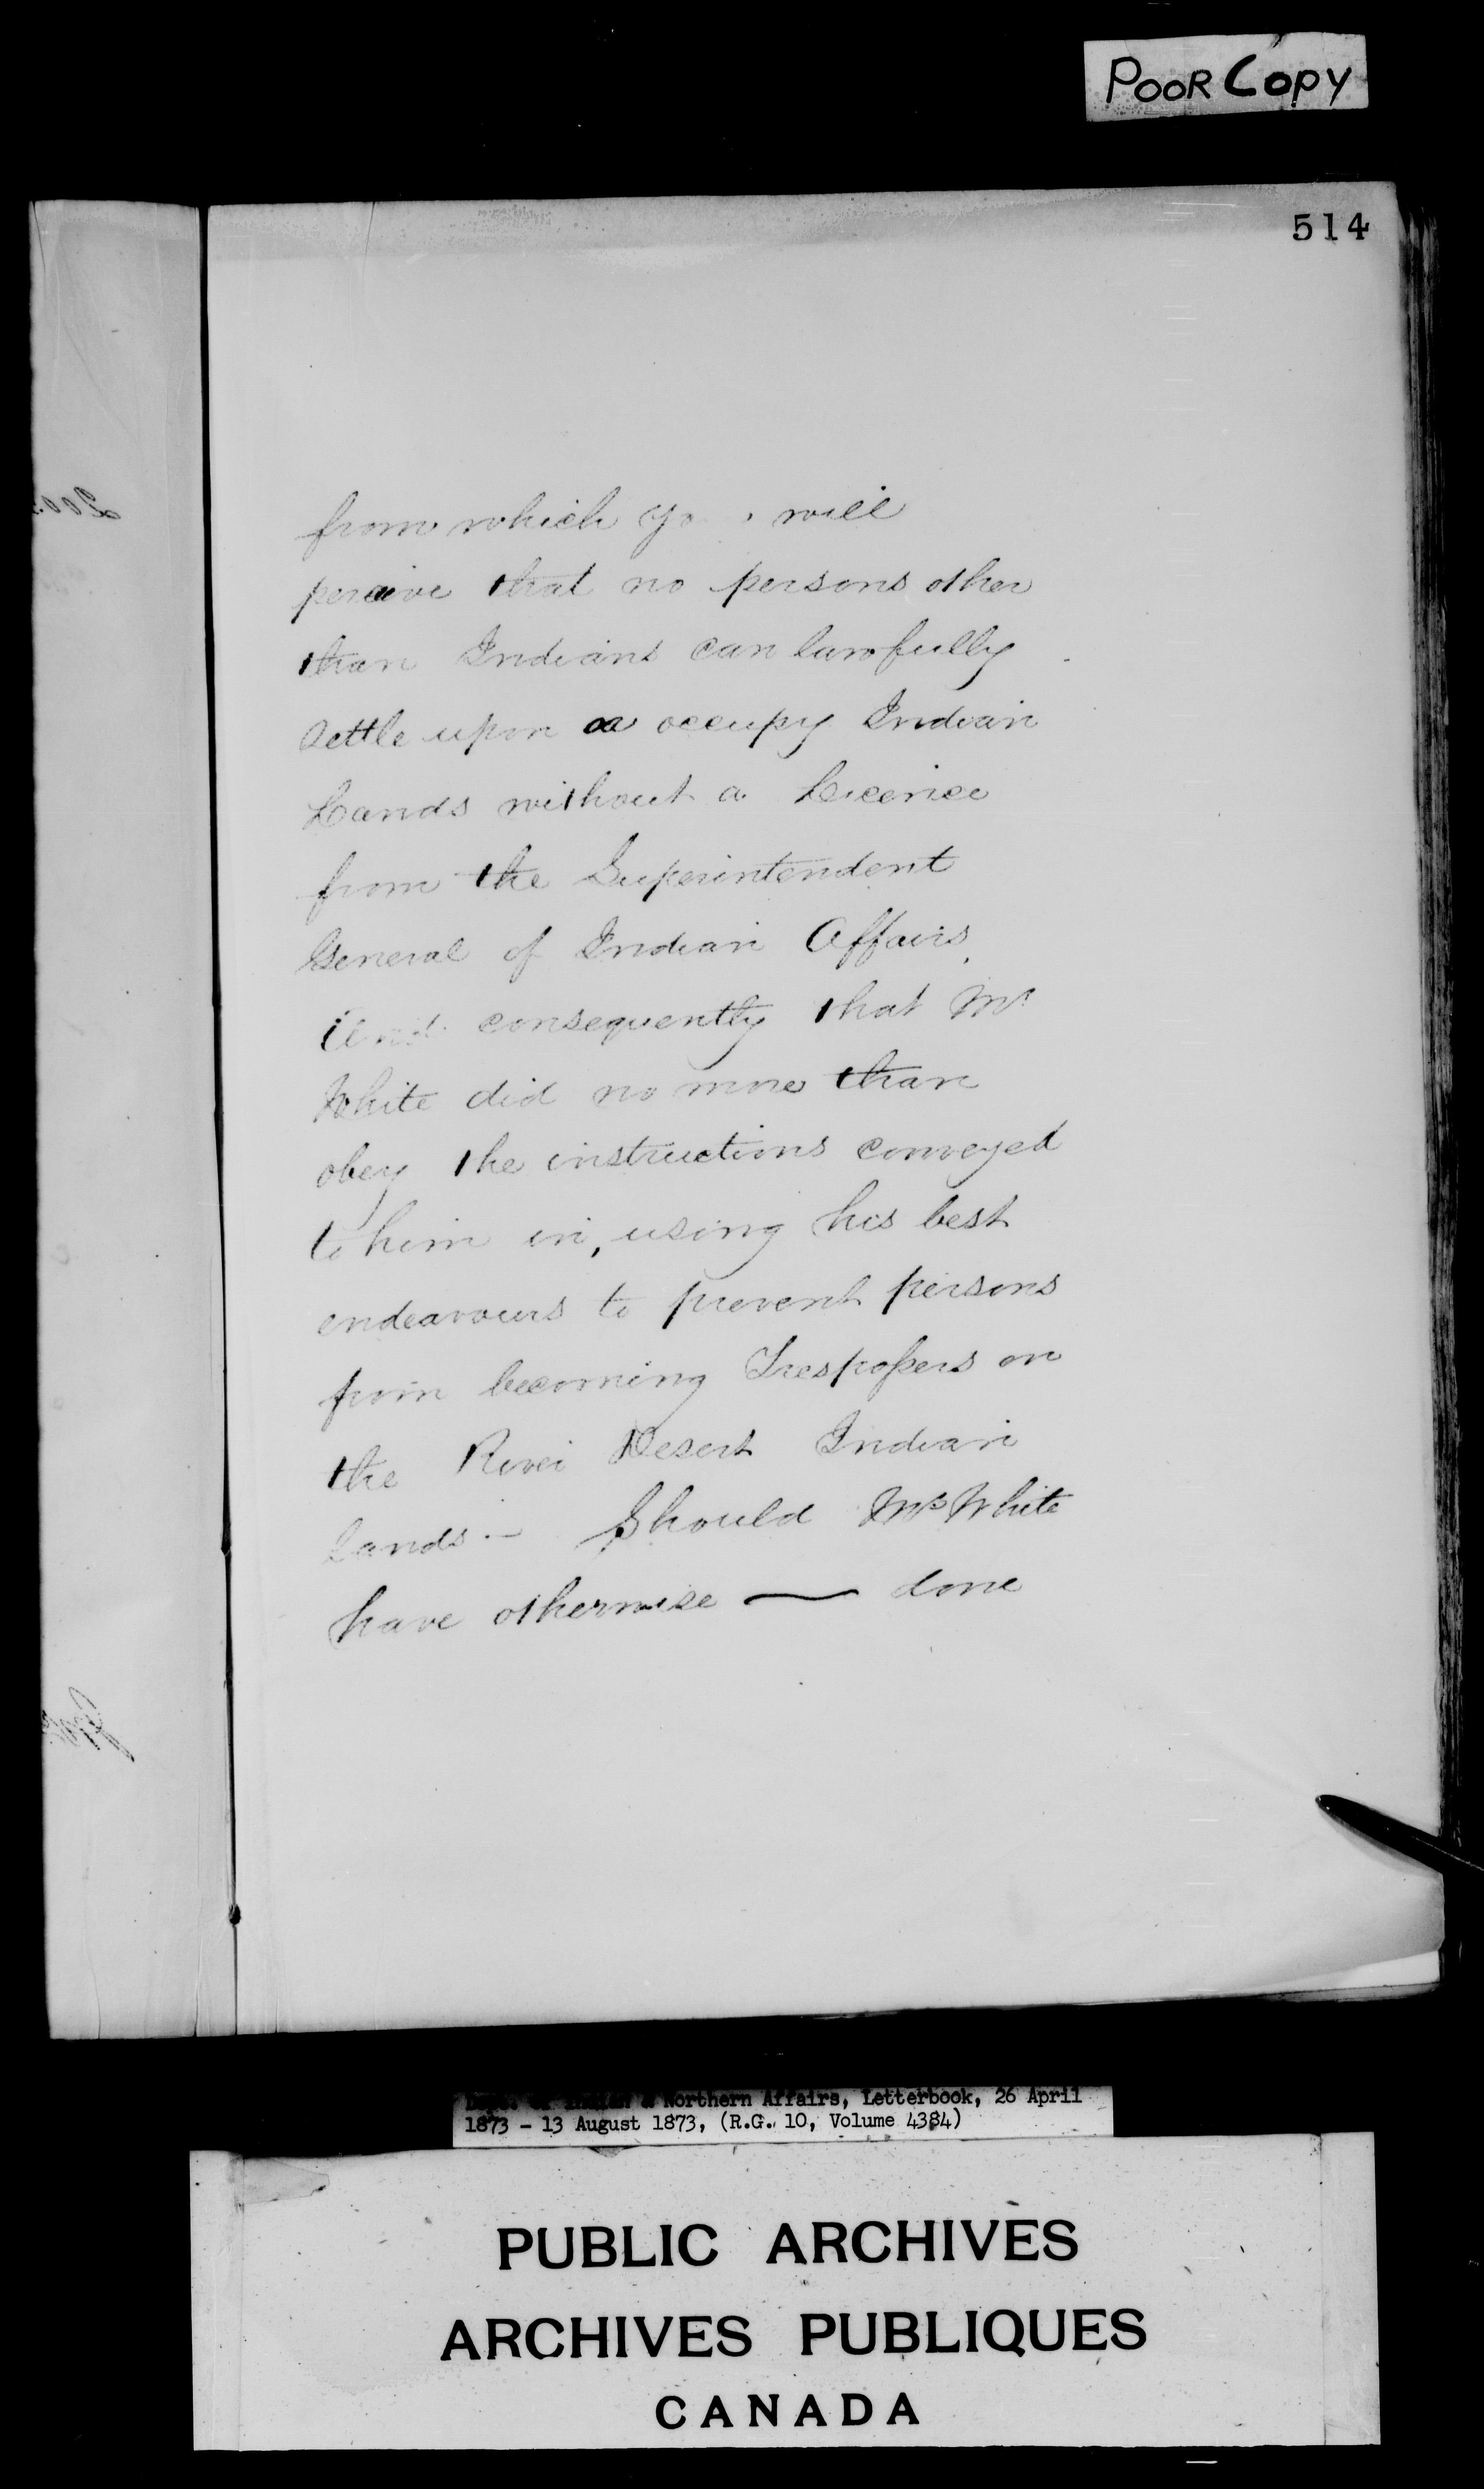 POOR COPY
514
from which yo will
perceive that no persons other
than Indians can lawfully
settle upon or occupy Indian
Lands without a Licence
from the Superintendent
General of Indian Affairs,
And consequently that Mr
White did no more than
obey the instructions conveyed
to him in, using his best
endeavours to prevent persons
from becoming Trespassers on
the River Desert Indian
Lands.— Should Mr White
have otherwise — done
Dept. of Indian & Northern Affairs, Letterbook, 26 April
1873 - 13 August 1873, (R.G. 10, Volume 4384)
PUBLIC ARCHIVES
ARCHIVES PUBLIQUES
CANADA